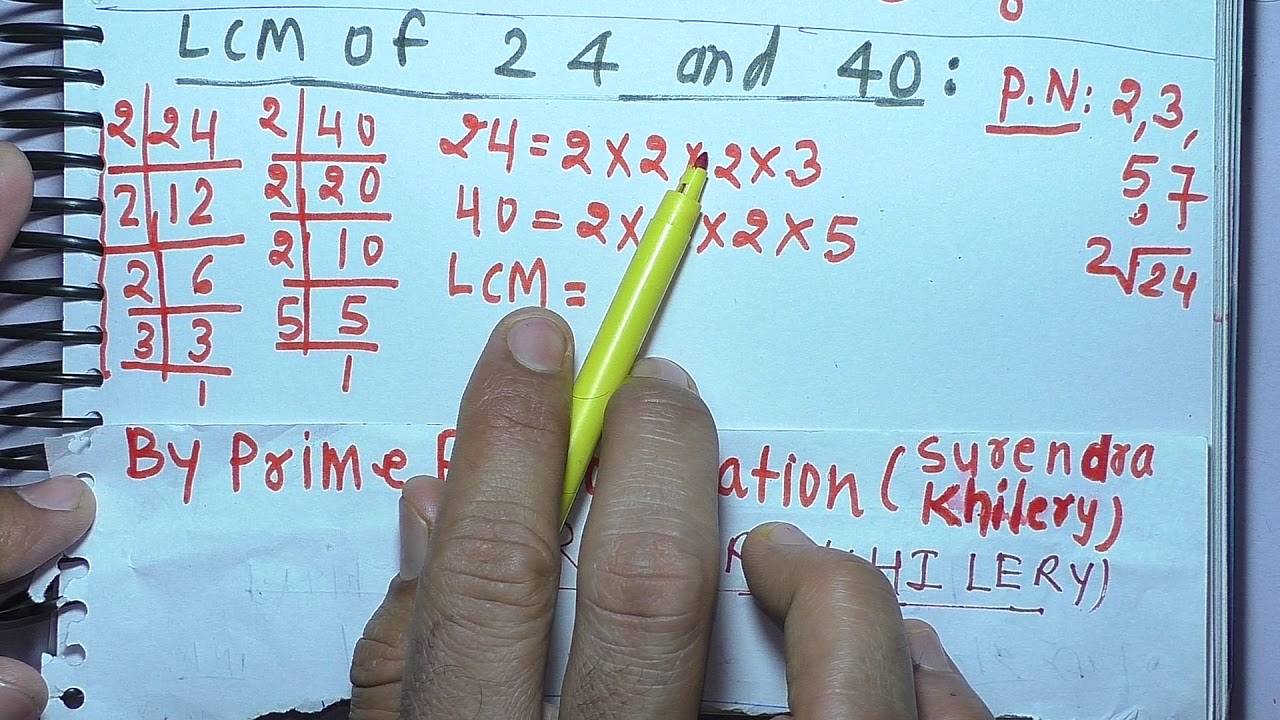 LCM of 24 and 40:
P.N: 2,3,
5,7
2√24
2 24
2 12
2 6
3 3
1
2 40
2 20
2 10
5 5
1
24=2×2×2×3
40=2× ×2×5
LCM=
By Prime ation (Surendra
Khilery)
HILERY)